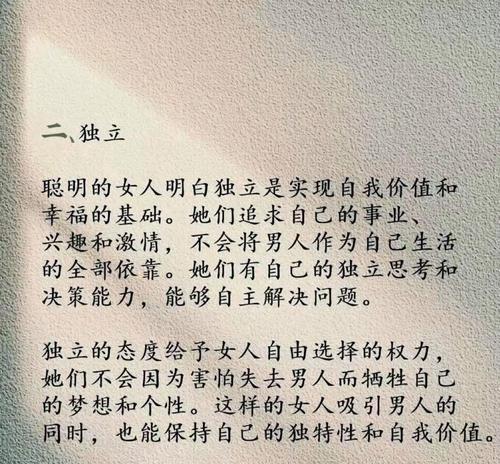 二、独立
聪明的女人明白独立是实现自我价值和
幸福的基础。她们追求自己的事业、
兴趣和激情，不会将男人作为自己生活
的全部依靠。她们有自己的独立思考和
决策能力，能够自主解决问题。
独立的态度给予女人自由选择的权力，
她们不会因为害怕失去男人而牺牲自己
的梦想和个性。这样的女人吸引男人的
同时，也能保持自己的独特性和自我价值。